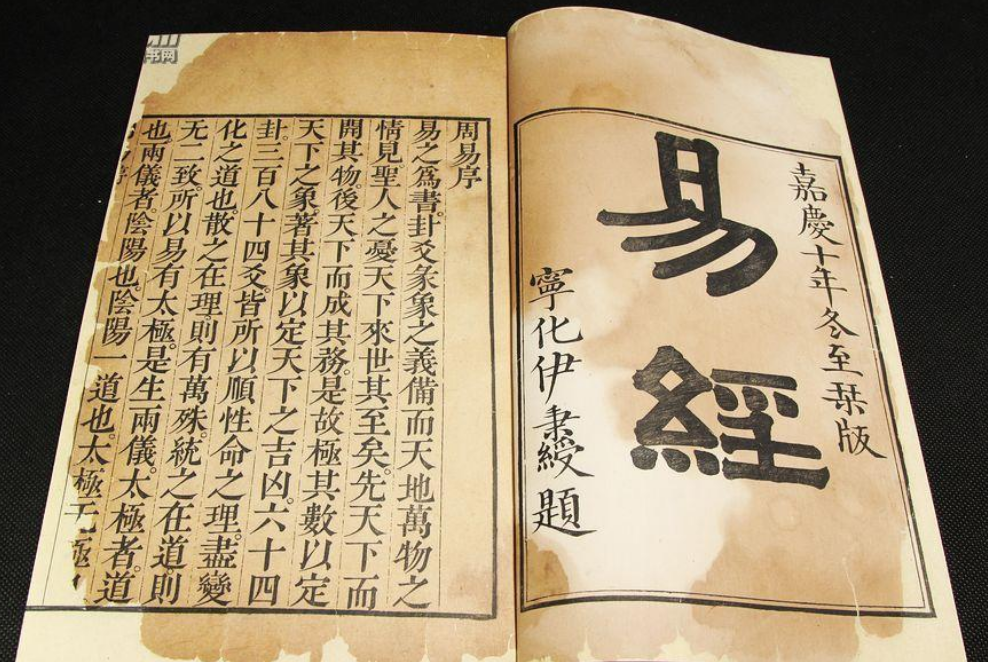 嘉慶十年冬至栞版
易經
寧化伊秉綬題
周易序
易之爲書。卦爻彖象之義備而天地萬物之
情見聖人之憂天下來世其至矣。先天下而
開其物。後天下而成其務。是故極其數以定
天下之象。著其象以定天下之吉凶。六十四
卦。三百八十四爻。皆所以順性命之理。盡變
化之道也。散之在理則有萬殊。統之在道。則
无二致。所以易有太極。是生兩儀。太極者。道
也兩儀者。陰陽也。陰陽一道也。太極无極
书网